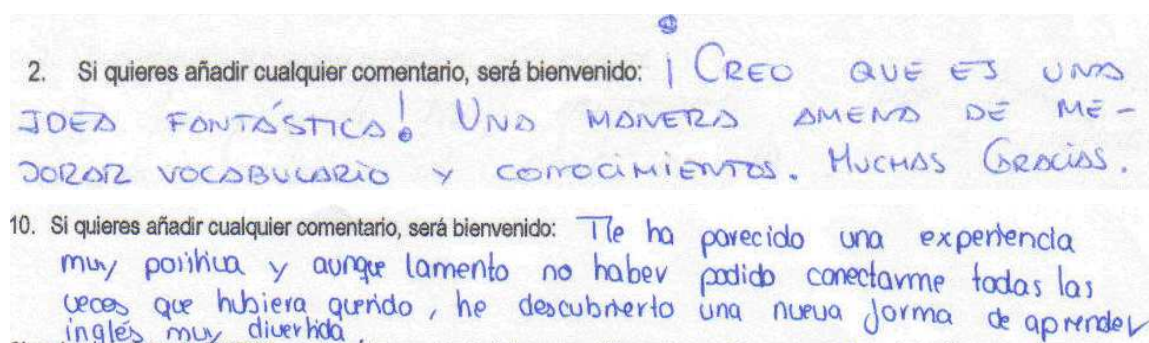 2. Si quieres añadir cualquier comentario, será bienvenido: ¡CREO QUE ES UNA
IDEA FANTÁSTICA! UNA MANERA AMENA DE ME-
JORAR VOCABULARIO Y CONOCIMIENTOS. MUCHAS GRACIAS.
10. Si quieres añadir cualquier comentario, será bienvenido: Me ha parecido una experiencia
muy positiva y aunque lamento no haber podido conectarme todas las
veces que hubiera querido, he descubierto una nueva forma de aprender
inglés muy divertida